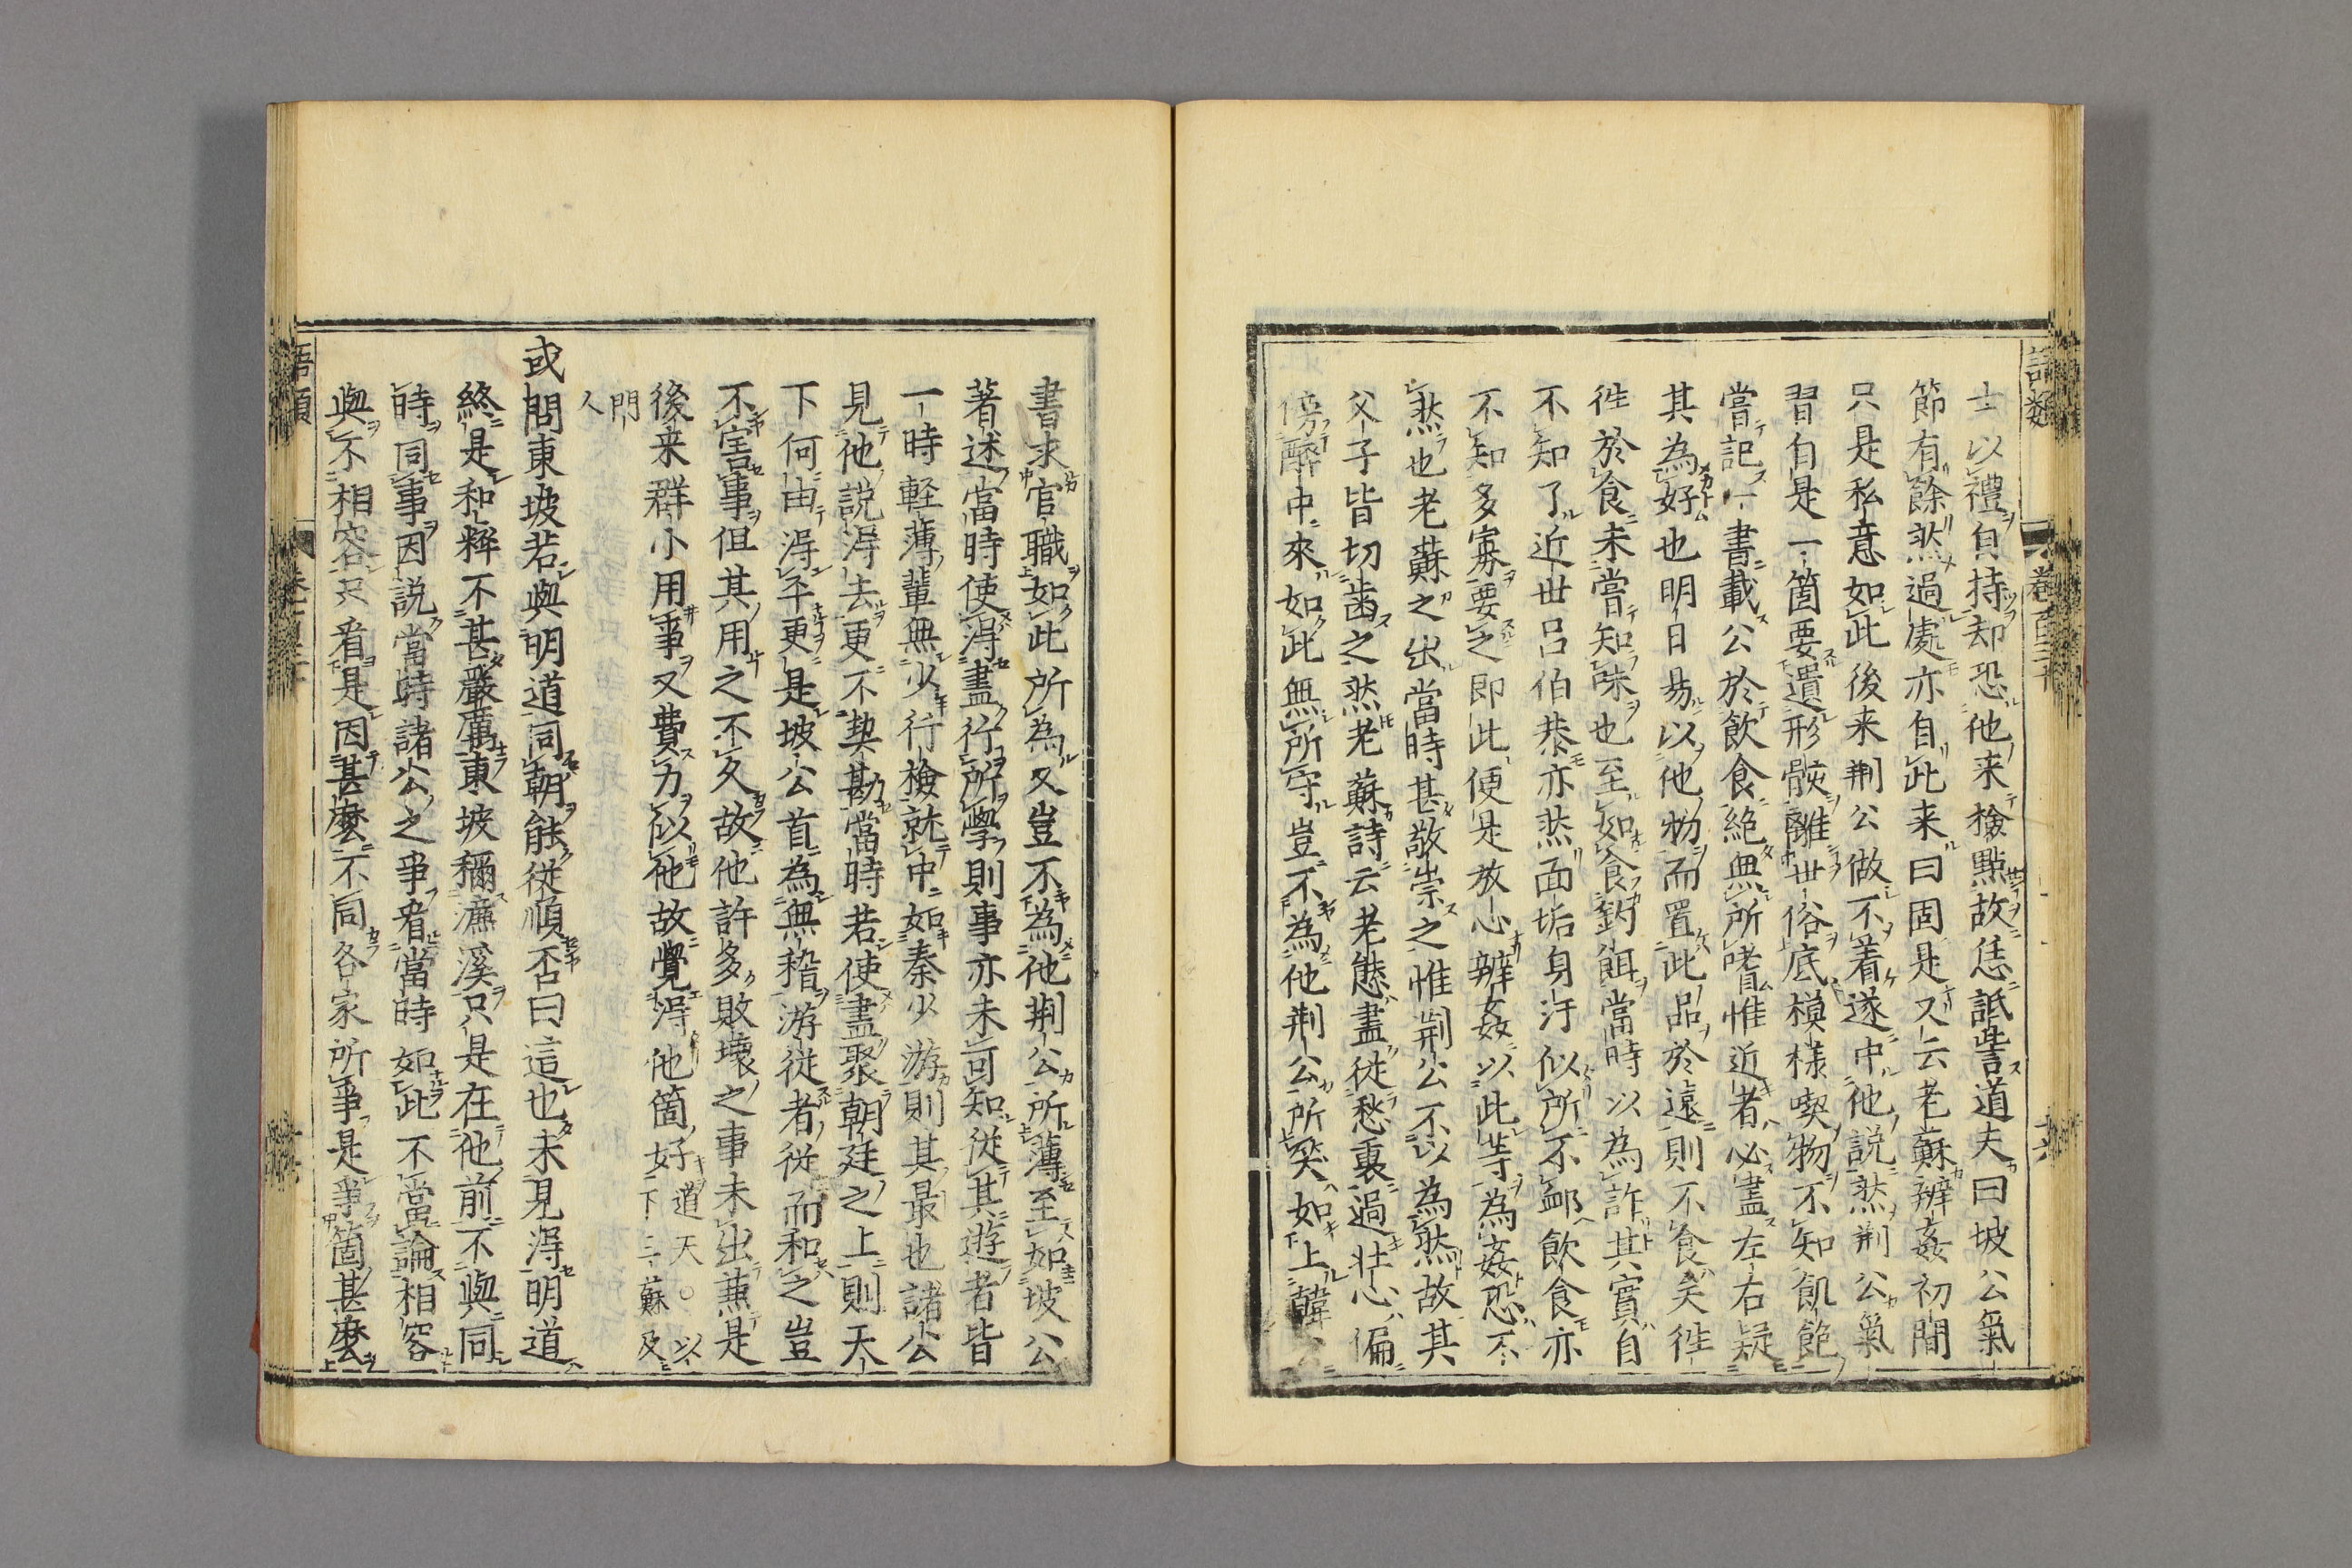 士以禮自持却恐他来檢點故恁詆訾道夫曰坡公氣
節有餘然過處亦自此来曰固是又云老蘇辨姦初間
只是私意如此後来荆公做不着遂中他説然荆公氣
習自是一箇要遺形骸離世俗底模様喫物不知飢飽
嘗記一書載公於飲食絶無所嗜惟近者必盡左右疑
其為好也明日易以他物而置此品於遠則不食矣徃
徃於食未嘗知味也至如食釣餌當時以為詐其實自
不知了近世吕伯恭亦然面垢身汙似所不䘏飲食亦
不知多寡要之即此便是放心辨姦以此等為姦恐不
然也老蘇之出當時甚敬崇之惟荆公不以為然故其
父子皆切齒之然老蘇詩云老態盡從愁裏過壮心偏
傍醉中來如此無所守豈不為他荆公所笑如上韓公
書求官職如此所為又豈不為他荆公所薄至如坡公
著述當時使得盡行所學則事亦未可知從其遊者皆
一時軽薄輩無少行檢就中如秦少游則其最也諸公
見他説得去更不契勘當時若使盡聚朝廷之上則天
下何由得平更是坡公首為無稽游從者從而和之豈
不害事但其用之不久故他許多敗壊之事未出蕪是
後来群小用事又費力似他故覺得他箇好道夫○以
下三蘇及
門
人
或問東坡若與明道同朝能從順否曰這也未見得明道
終是和粹不甚嚴厲東坡稱濂溪只是在他前不與同
時同事因説當時諸公之爭看當時如此不當論相容
與不相容只看是因甚麽不同各家所爭是爭箇甚麽